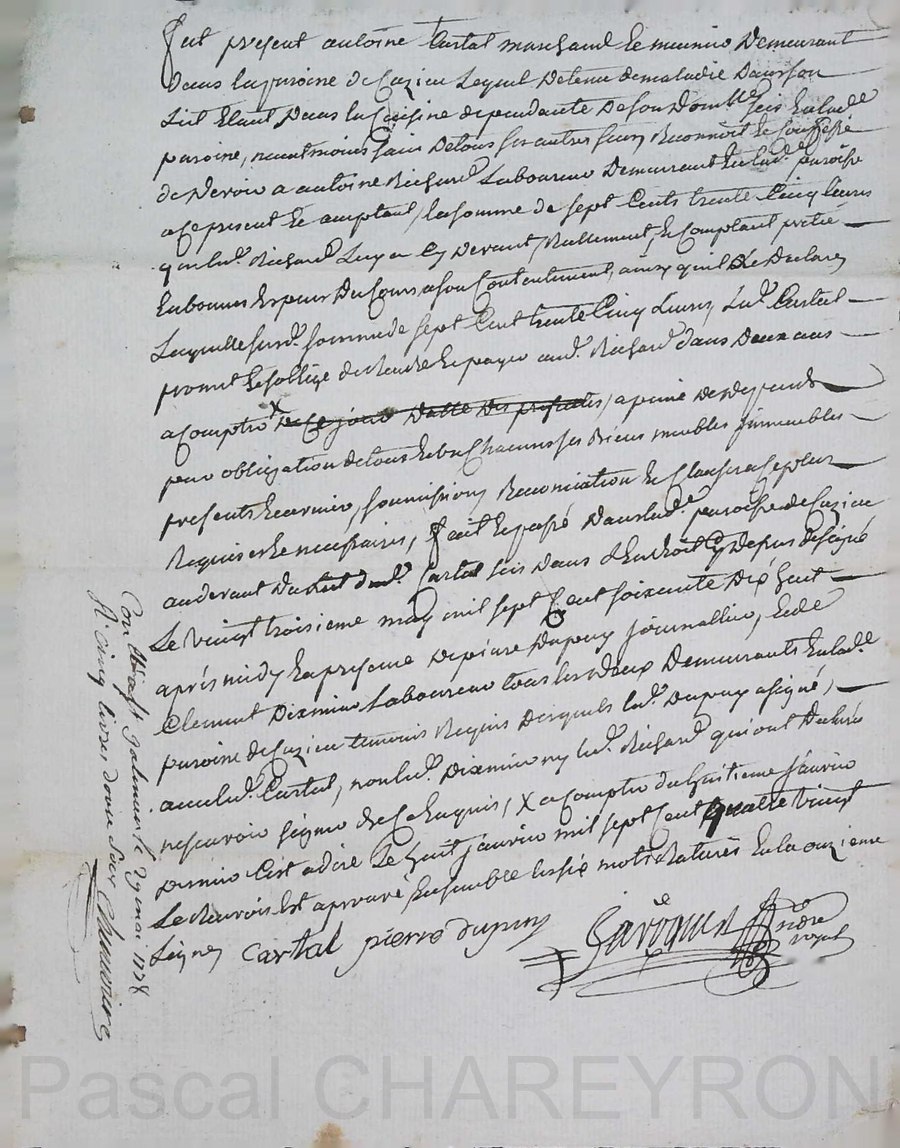 fut present antoine Cartal marchand et meunier Demeurant
dans la paroise de Cuzieu Lequel Detenu de maladie Dans son
Lit Etant Dans la Cuisine dependante De son Domlle scis En lade
paroise, neantmoins sain De tous ses autres sens Reconnoit et Confesse
de Devoir a antoine Richard Laboureur Demeurant En lad.e paroise
a Ce present et aceptant, la somme de sept Cents trente Cinq livres
que led. Richard Luy a Cy Devant Reellement et Comptant preté
En bonnes Especes Du Cours, a son Contentement, ainsy qu'il Le Declare,
Laquelle susd.e somme de sept Cent trente Cinq Livres, led. Cartal
promet Et s'oblige de Rendre Et payer aud. Richard dans Deux ans
a Compter X de Ce jour Datte Des presentes, a peine De Depends
pour obligation de tout Chacuns ses Biens meubles immeubles
presents Et avenir, soumissions Renonciation Et Clauses a Ce plus
Requises Et necessaires, fait Et passé Dans lad.e paroise de Cuzieu
au devant Du Lit dud. Cartal scis Dans L'Endroit Cy Depus Designé
Le vingt troisieme may mil sept Cent soixante Dix huit
aprés midy En presence De pierre Dupuy journallier, Et de
Clement Dixmier Laboureur tous les deux Demeurants En lad.e
paroise de Cuzieu temoins Requis Desquels led. Dupuy a signé,
avec led. Cartal, non led. Dixmier ny led. Richard qui ont Declaré
ne scavoir signer de Ce Enquis, X a Compter du huitieme janvier
Dernier C'est a dire Le huit janvier mil sept Cent quatre vingt
Le Renvois Est aprouvé Ensemble les six mots Raturés En la onzieme
Ligne,
Cartal pierre dupuy
Nore royal
Con^llé à St galmier le 29 mai 1778
R. cinq livres, douze sols
Pascal CHAREYRON